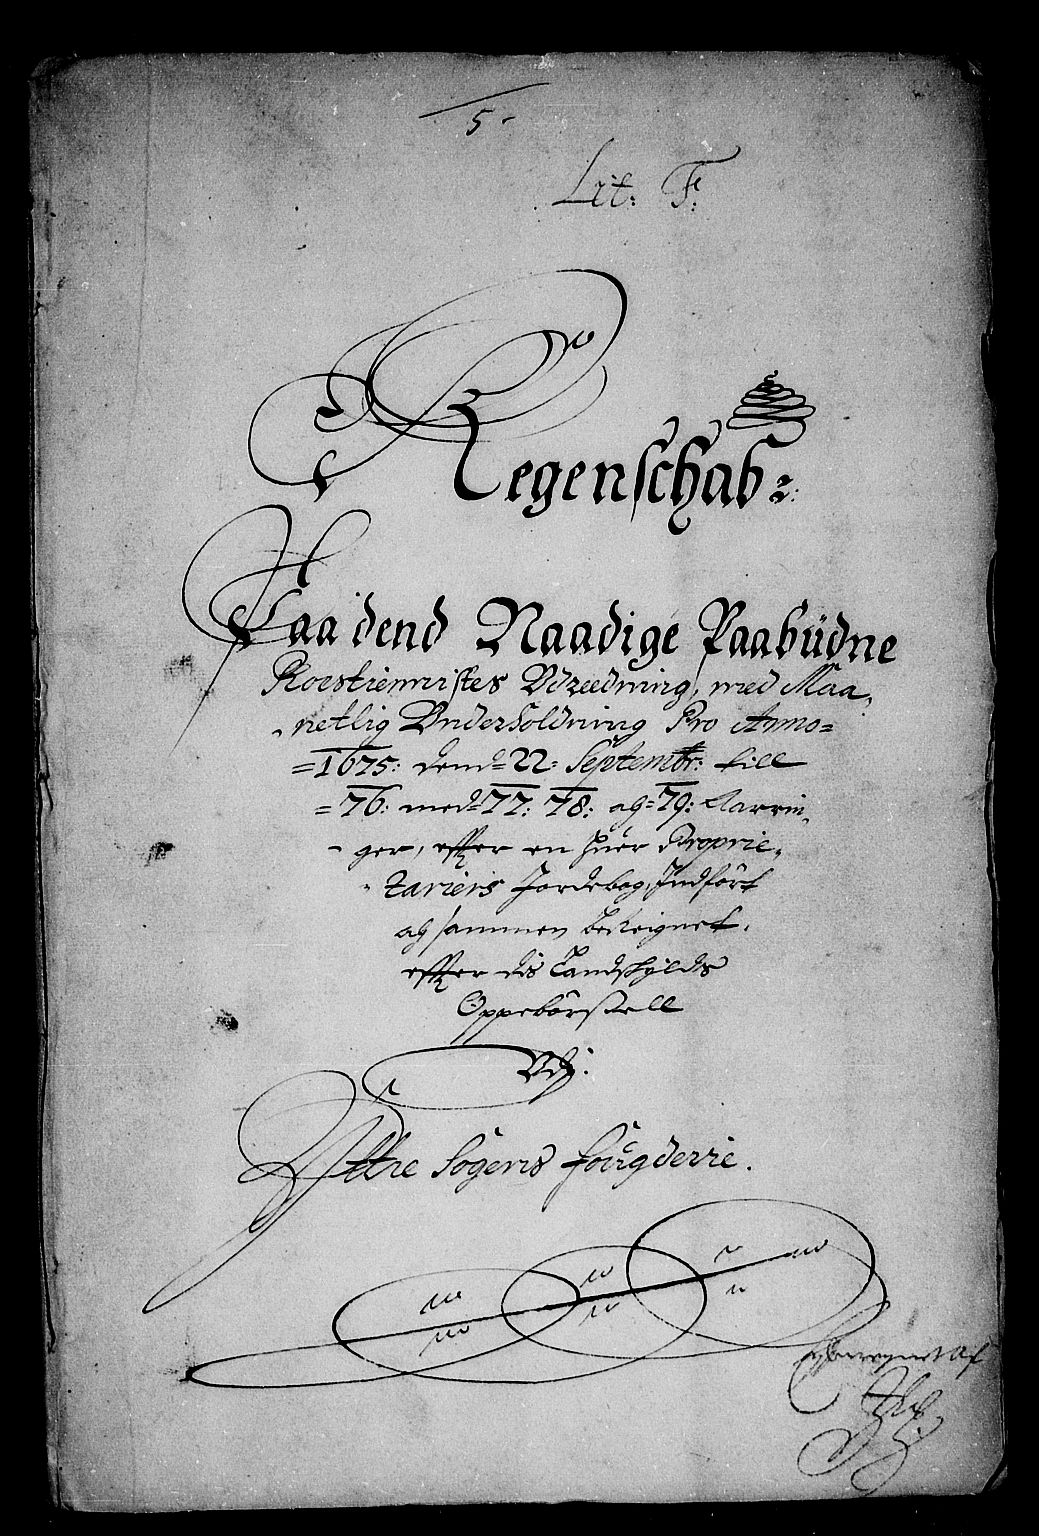 5-
Lit: F:
Regenschab:
Paa dend Naadige Paabüdne
Roestiennistes Vdreedning, med Maa,
netlig Vnderholdning Pro Anno=
=1675: dend= 22: Septembr: till
=76: med= 77: 78: og= 79: Aarrin,
ger, effter en huer Proprie,
tariers Jordebog, Indfört
og sammen bereignet,
effter dis Landskylds
Oppebörsell
Vdj:
Yttre Sogens fougderie.
af